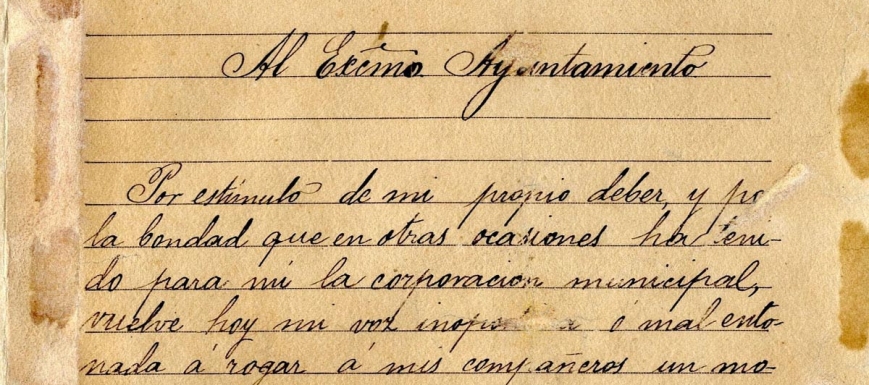 Al Excmo Ayuntamiento
Por estímulo de mi propio deber, y po
la bondad que en otras ocasiones ha teni-
do para mi la corporacion municipal,
vuelve hoy mi voz ó mal ento-
nada á rogar á mis compañeros un mo-